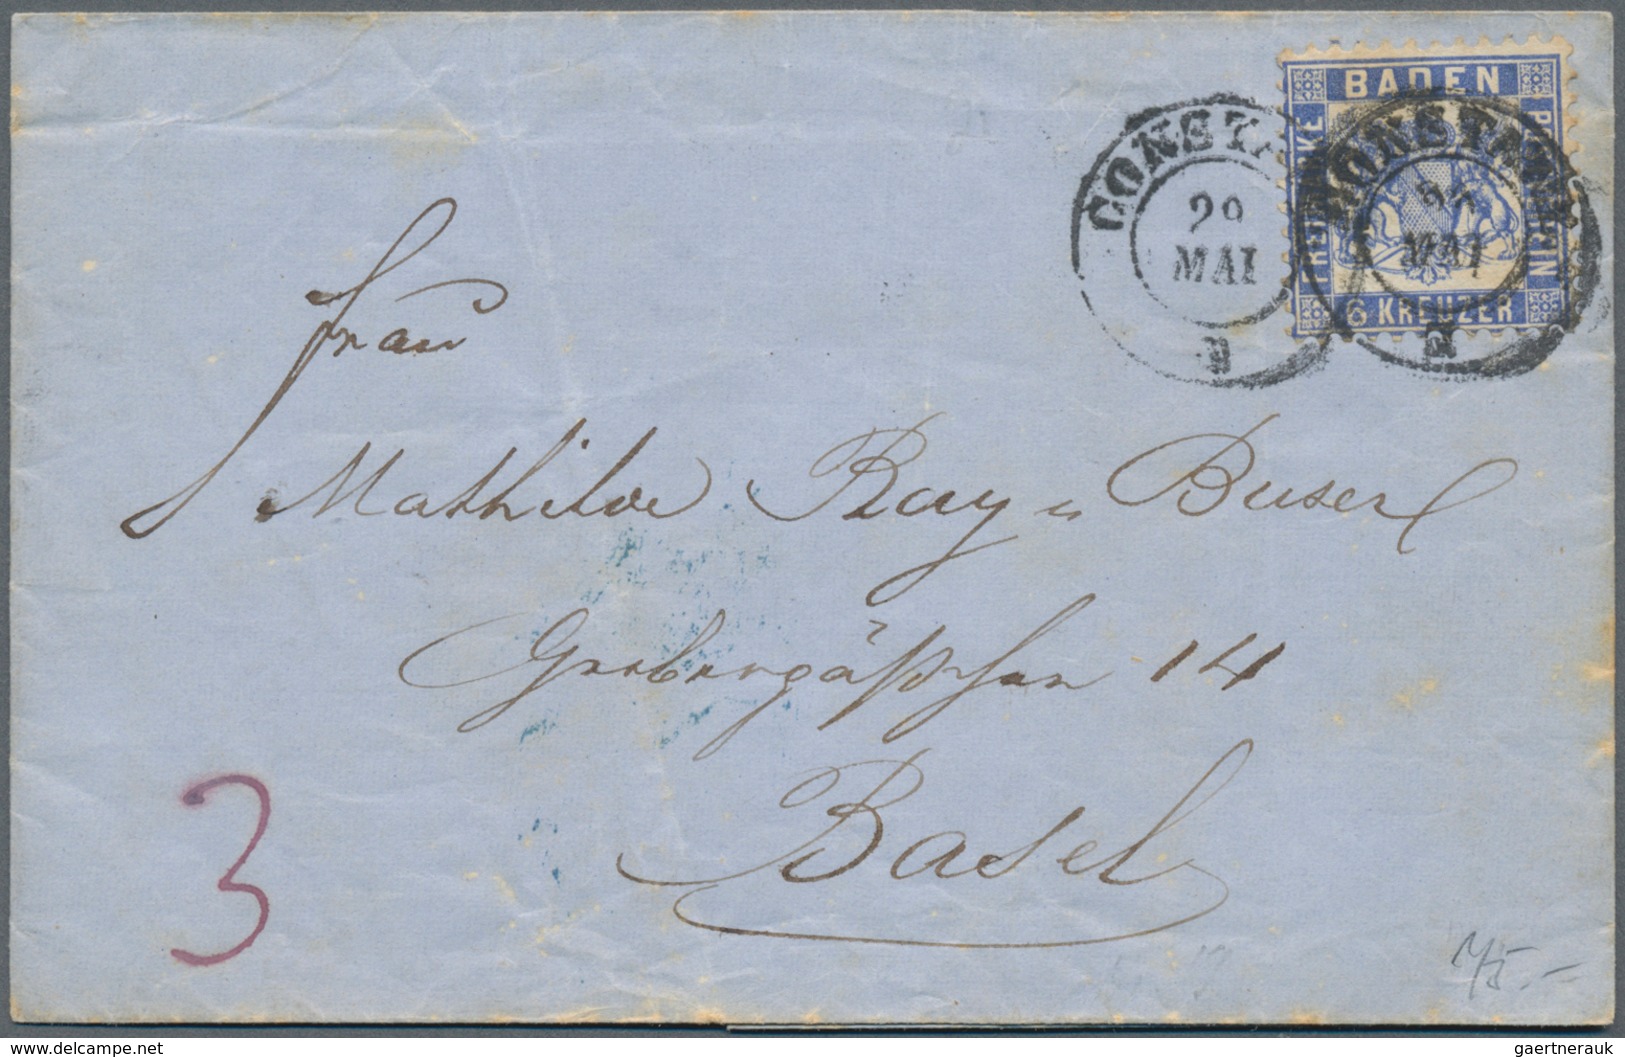 BADEN
FREIMARKE
POSTVEREIN
6 KREUZER
CONSTA
29
MAI
CONSTANZ
MAI
Frau
Mathilde Ray u Buser
Grebergäßchen 14
Basel
3
75.-
www.delcampe.net
gaertnerauk